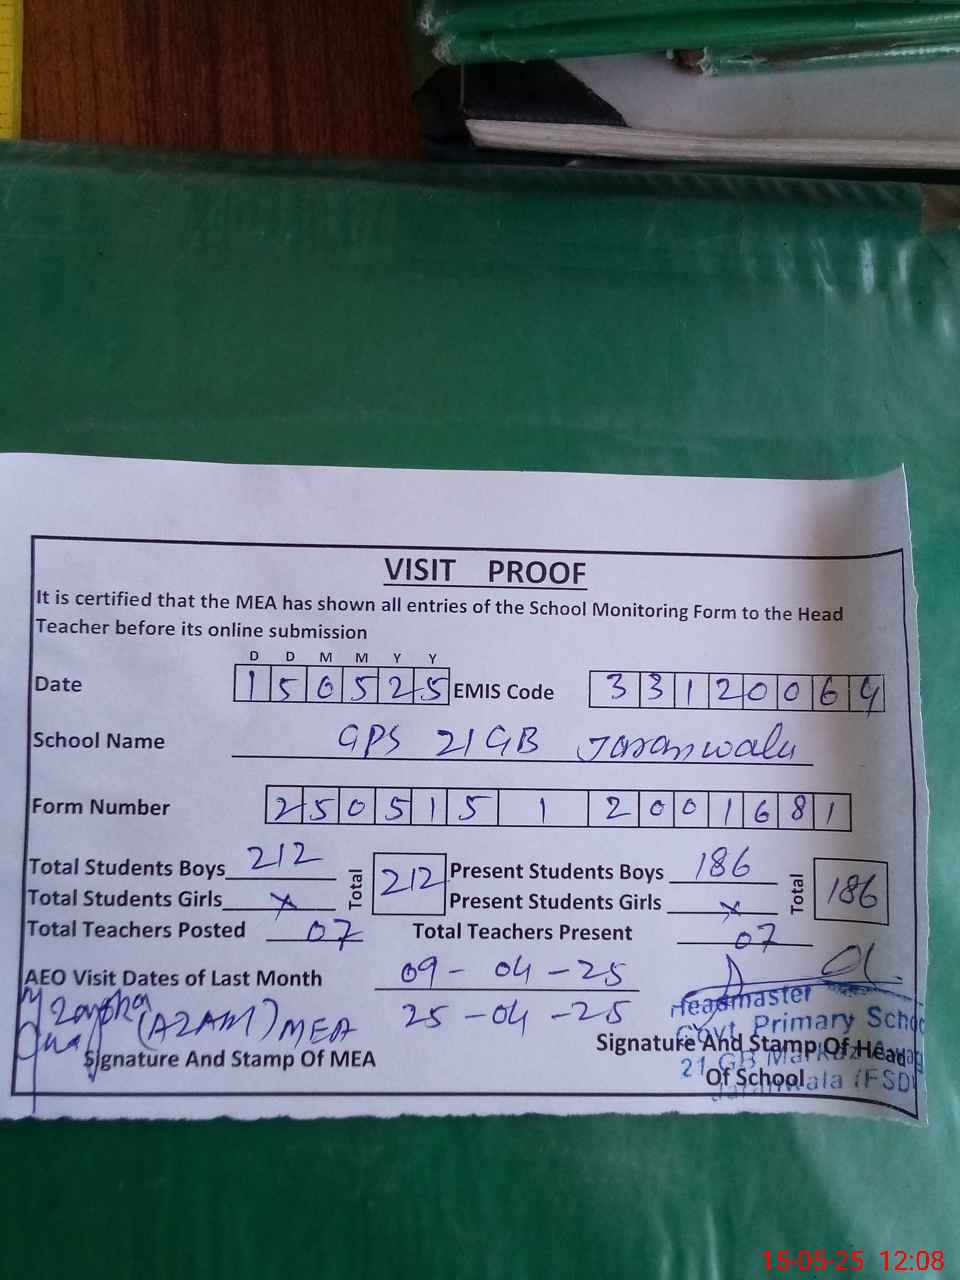 VISIT PROOF
It is certified that the MEA has shown all entries of the School Monitoring Form to the Head
Teacher before its online submission
D D M M Y Y
Date 1 5 0 5 2 5 EMIS Code 3 3 1 2 0 0 6 4
School Name GPS 21 GB Jaranwala
Form Number 2 5 0 5 1 5 1 2 0 0 1 6 8 1
Total Students Boys 212 Total 212 Present Students Boys 186 Total 186
Total Students Girls x Present Students Girls x
Total Teachers Posted 07 Total Teachers Present 07
AEO Visit Dates of Last Month 09-04-25
25-04-25
(AZAM) MEA
Signature And Stamp Of MEA
Headmaster
Govt Primary Scho
Signature And Stamp Of Head
21 GB
Of School
Jaranwala (FSD)
15-05-25 12:08